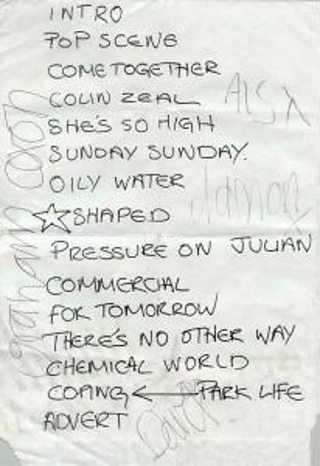 INTRO
POP SCENE
COME TOGETHER
COLIN ZEAL
SHE'S SO HIGH
SUNDAY SUNDAY.
OILY WATER
☆SHAPED
PRESSURE ON JULIAN
COMMERCIAL
FOR TOMORROW
THERE'S NO OTHER WAY
CHEMICAL WORLD
COPING ← PARK LIFE
ADVERT
Graham Coxon
Alex
Damon
Dave